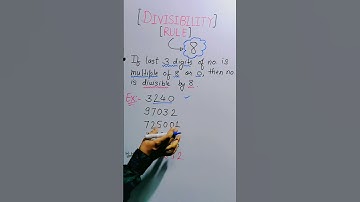 [DIVISIBILITY]
[RULE]
8
If last 3 digits of no. is
multiple of 8 or 0, then no.
is divisible by 8.
Ex- 3240 ✓
97032
725002